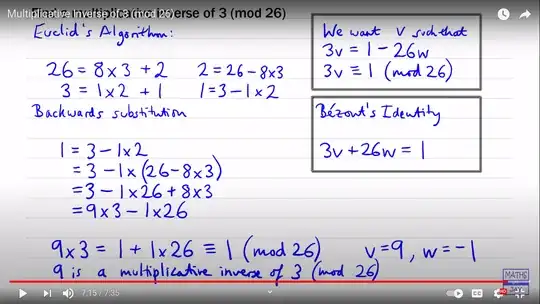 Multiplicative inverse of 3 (mod 26)
Euclid's Algorithm:
26 = 8x3 + 2
2 = 26 - 8x3
3 = 1x2 + 1
1 = 3 - 1x2
Backwards substitution
1 = 3 - 1x2
= 3 - 1x(26 - 8x3)
= 3 - 1x26 + 8x3
= 9x3 - 1x26
We want v such that
3v = 1 - 26w
3v ≡ 1 (mod 26)
Bézout's Identity
3v + 26w = 1
9x3 = 1 + 1x26 ≡ 1 (mod 26)
v = 9, w = -1
9 is a multiplicative inverse of 3 (mod 26)
7:15 / 7:35
MATHS